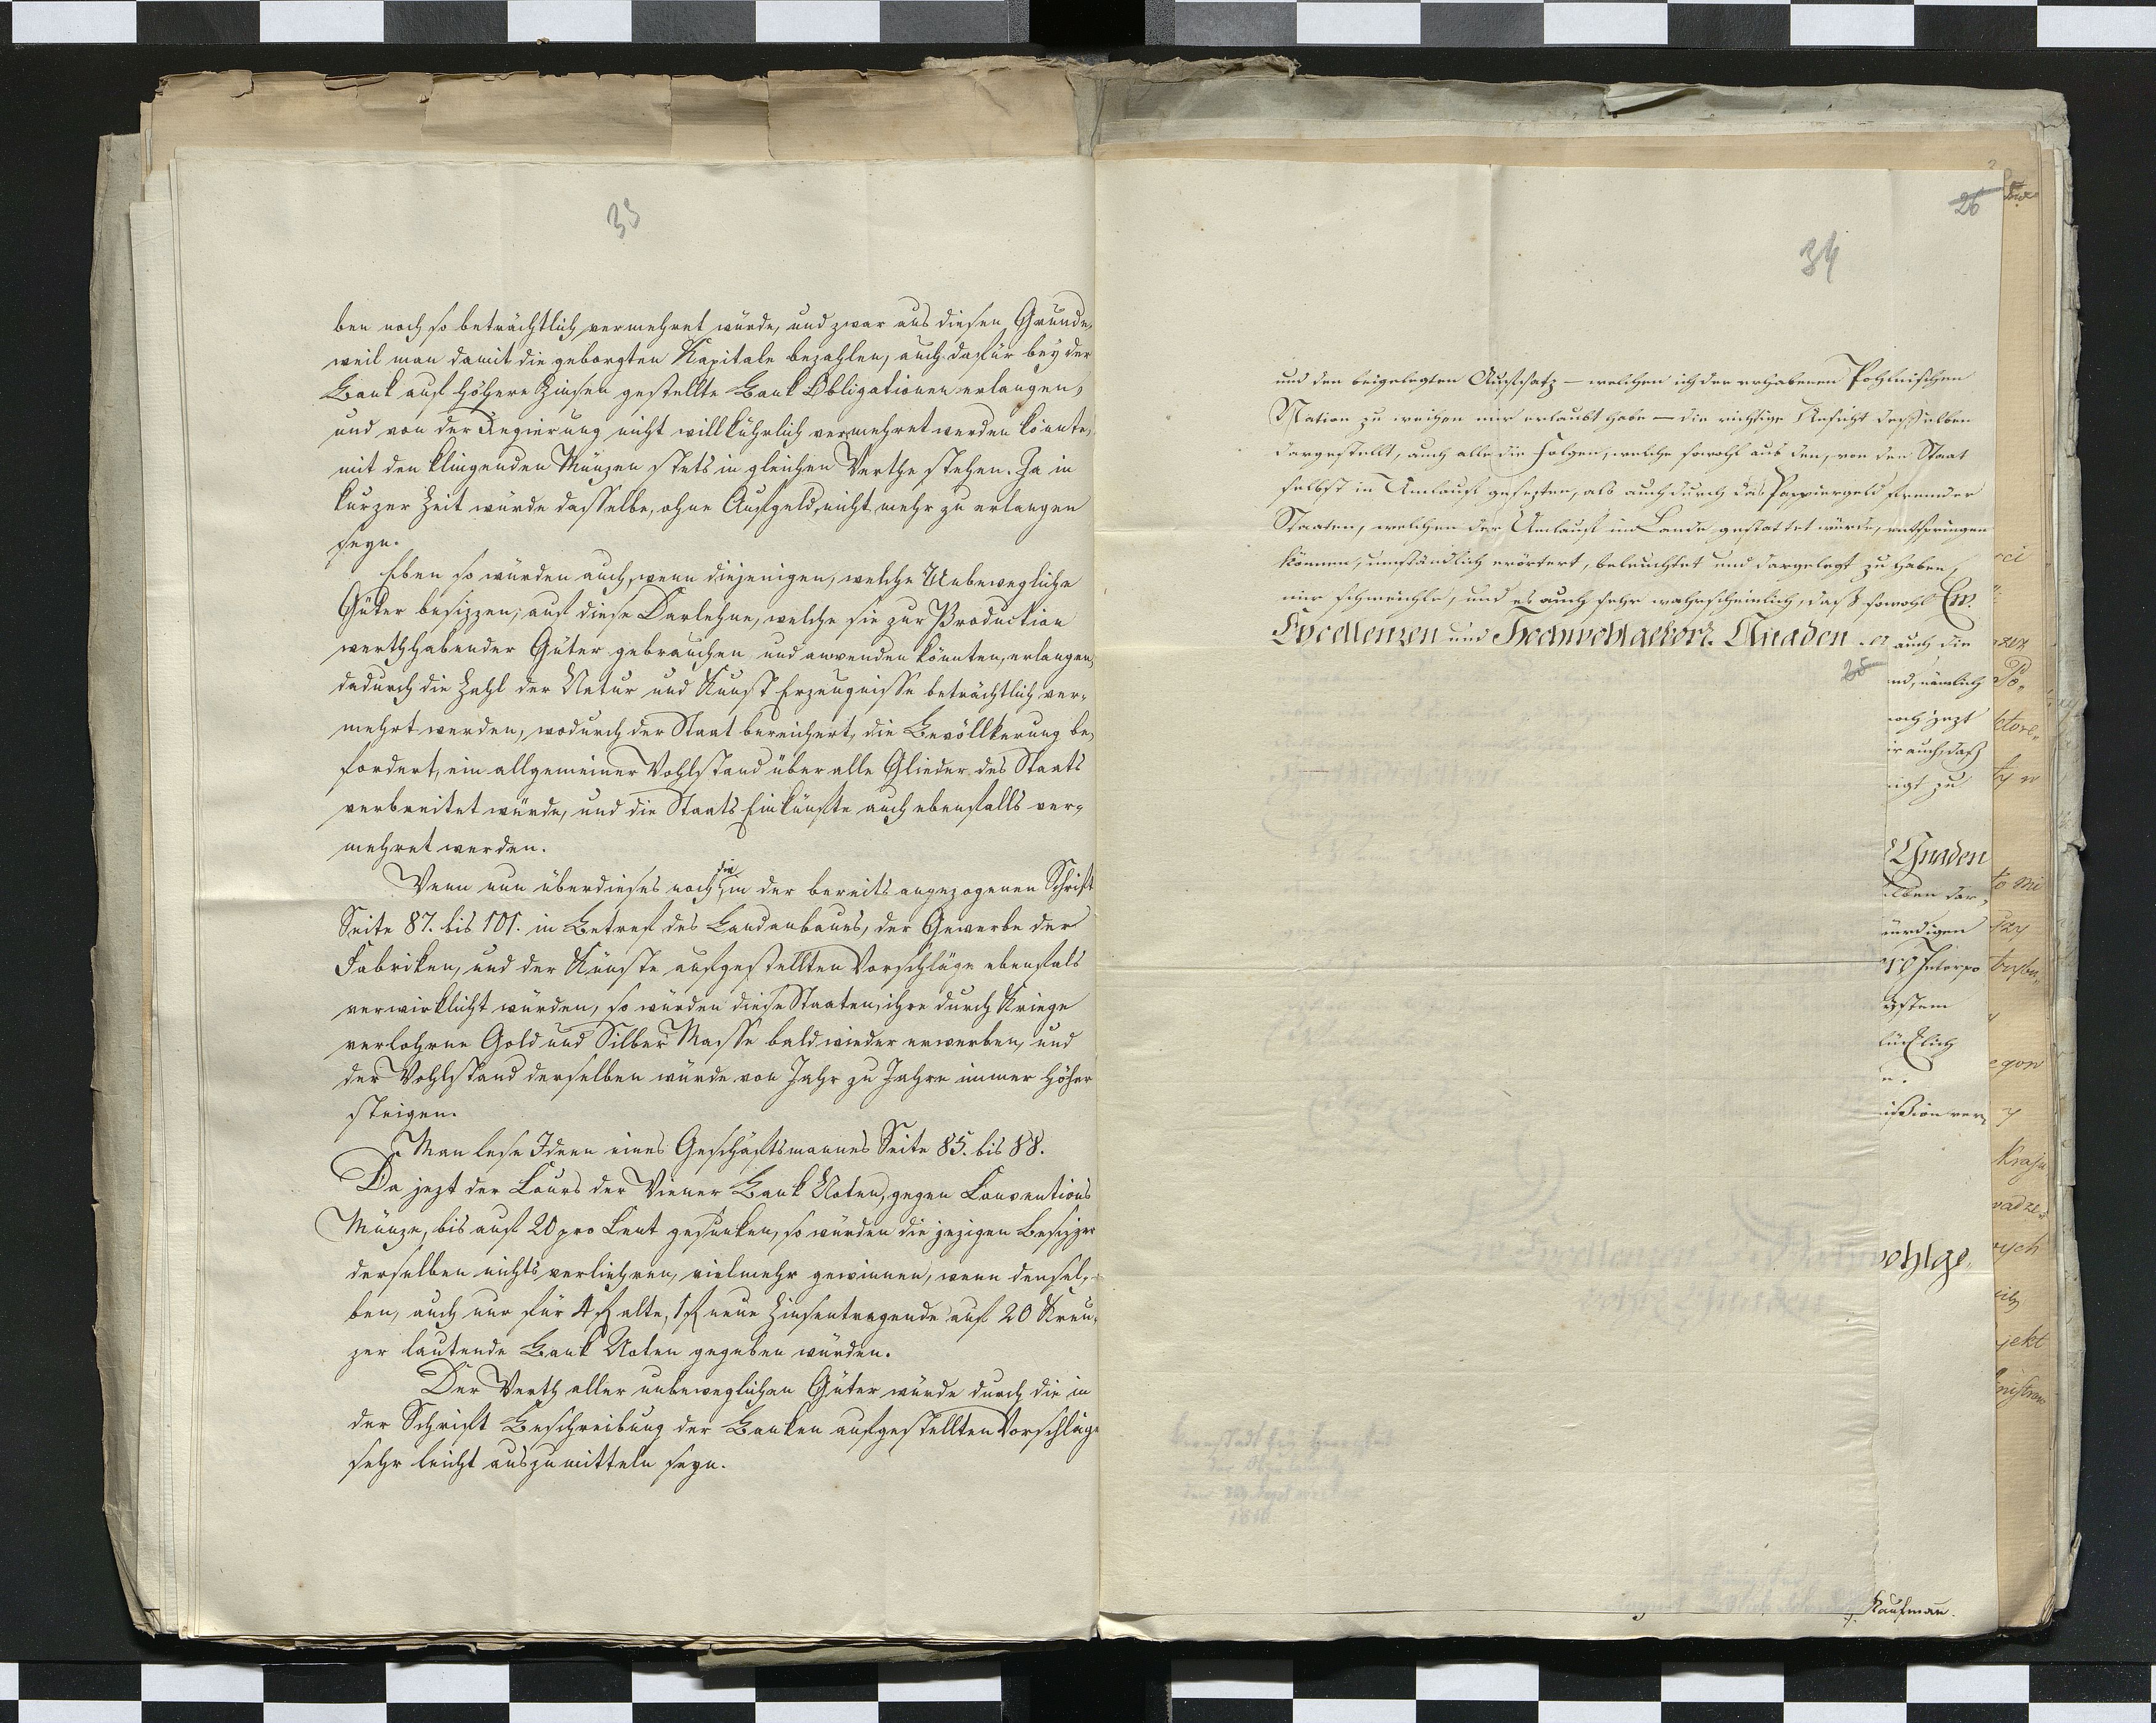 33
ben noch so beträchtlich vermehret würde, und zwar aus diesen Grunde,
weil man damit die geborgten Kapitale bezahlen, auch dafür bey der
Bank auf höhere Zinsen gestellte Bank Obligationen erlangen,
und von der Regierung nicht willkührlich vermehret werden könnte,
mit den klingenden Münzen stets in gleichen Werthe stehen. Ja in
kurzer Zeit würde dasselbe, ohne Aufgeld, nicht mehr zu erlangen
seyn.
Eben so würden auch, wenn diejenigen, welche Unbewegliche
Güter besizzen, auf diese Darlehne, welche sie zur Production
werthhabender Güter gebrauchen und anwenden könnten, erlangen,
dadurch die Zahl der Natur und Kunst Erzeugnisse beträchtlich ver-
mehrt werden, wodurch der Staat bereichert, die Bevöllkerung be-
fordert, ein allgemeiner Wohlstand über alle Glieder des Staats
verbreitet würde, und die Staats Einkünfte auch ebenfalls ver-
mehret werden.
Wenn nun überdieses noch die in der bereits angezogenen Schrift
Seite 87. bis 101. in Betref des Landanbaues, der Gewerbe der
Fabriken, und der Künste aufgestellten Vorschläge ebenfals
verwirklicht würden, so würden diese Staaten, ihre durch Kriege
verlohrne Gold und Silber Masse bald wieder erwerben, und
der Wohlstand derselben würde von Jahr zu Jahre immer höher
steigen.
Man lese Ideen eines Geschäftsmannes Seite 85. bis 88.
Da jezt der Cours der Wiener Bank Noten, gegen Conventions
Münze, bis auf 20 pro Cent gesunken, so würden die jezigen Besizzer
derselben nichts verliehren, vielmehr gewinnen, wenn densel-
ben, auch nur für 4 f alte, 1 f neue Zinsentragende auf 20 Kreu-
zer lautende Bank Noten gegeben würden.
Der Werth aller unbeweglichen Güter würde durch die in
der Schrift Beschreibung der Banken aufgestellten Vorschläge
sehr leicht auszumitteln seyn.
26
34
und den beigelegten Aufsatz – welchen ich der erhabenen Pohlnischen
Nation zu weihen mir erlaubt habe – die richtige Ansicht desselben
dargestellt, auch alle die Folgen, welche sowohl aus den, von den Staat
selbst in Umlauf gesezten, als auch durch das Pappiergeld fremder
Staaten, welchen der Umlauf im Lande gestattet würde, entspringen
können, umständlich erörtert, beleuchtet und dargelegt zu haben,
mir schmeichle, und es auch sehr wahrscheinlich, daß sowohl Ew.
Excellenzen und Hochwohlgebor. Gnaden auch die
25
nd, nämlich
och jezt
ir auch, daß
igt zu
Gnaden
lben dar-
ürdigen
Interpo
ystem
lücklich
n.
ission ver-
ohlge-
Kaufman.
ci
szez
Po-
ktore-
ty w
to mi
rzy
egow
y
kraju
wadze-
ych
jekt